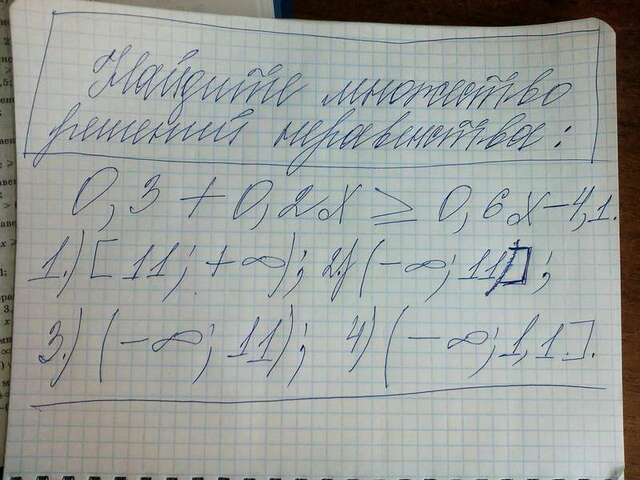 Найдите множество
решений неравенства:
0,3 + 0,2x ≥ 0,6x - 4,1.
1.) [11; +∞); 2.) (-∞; 11];
3.) (-∞; 11); 4) (-∞; 1,1].